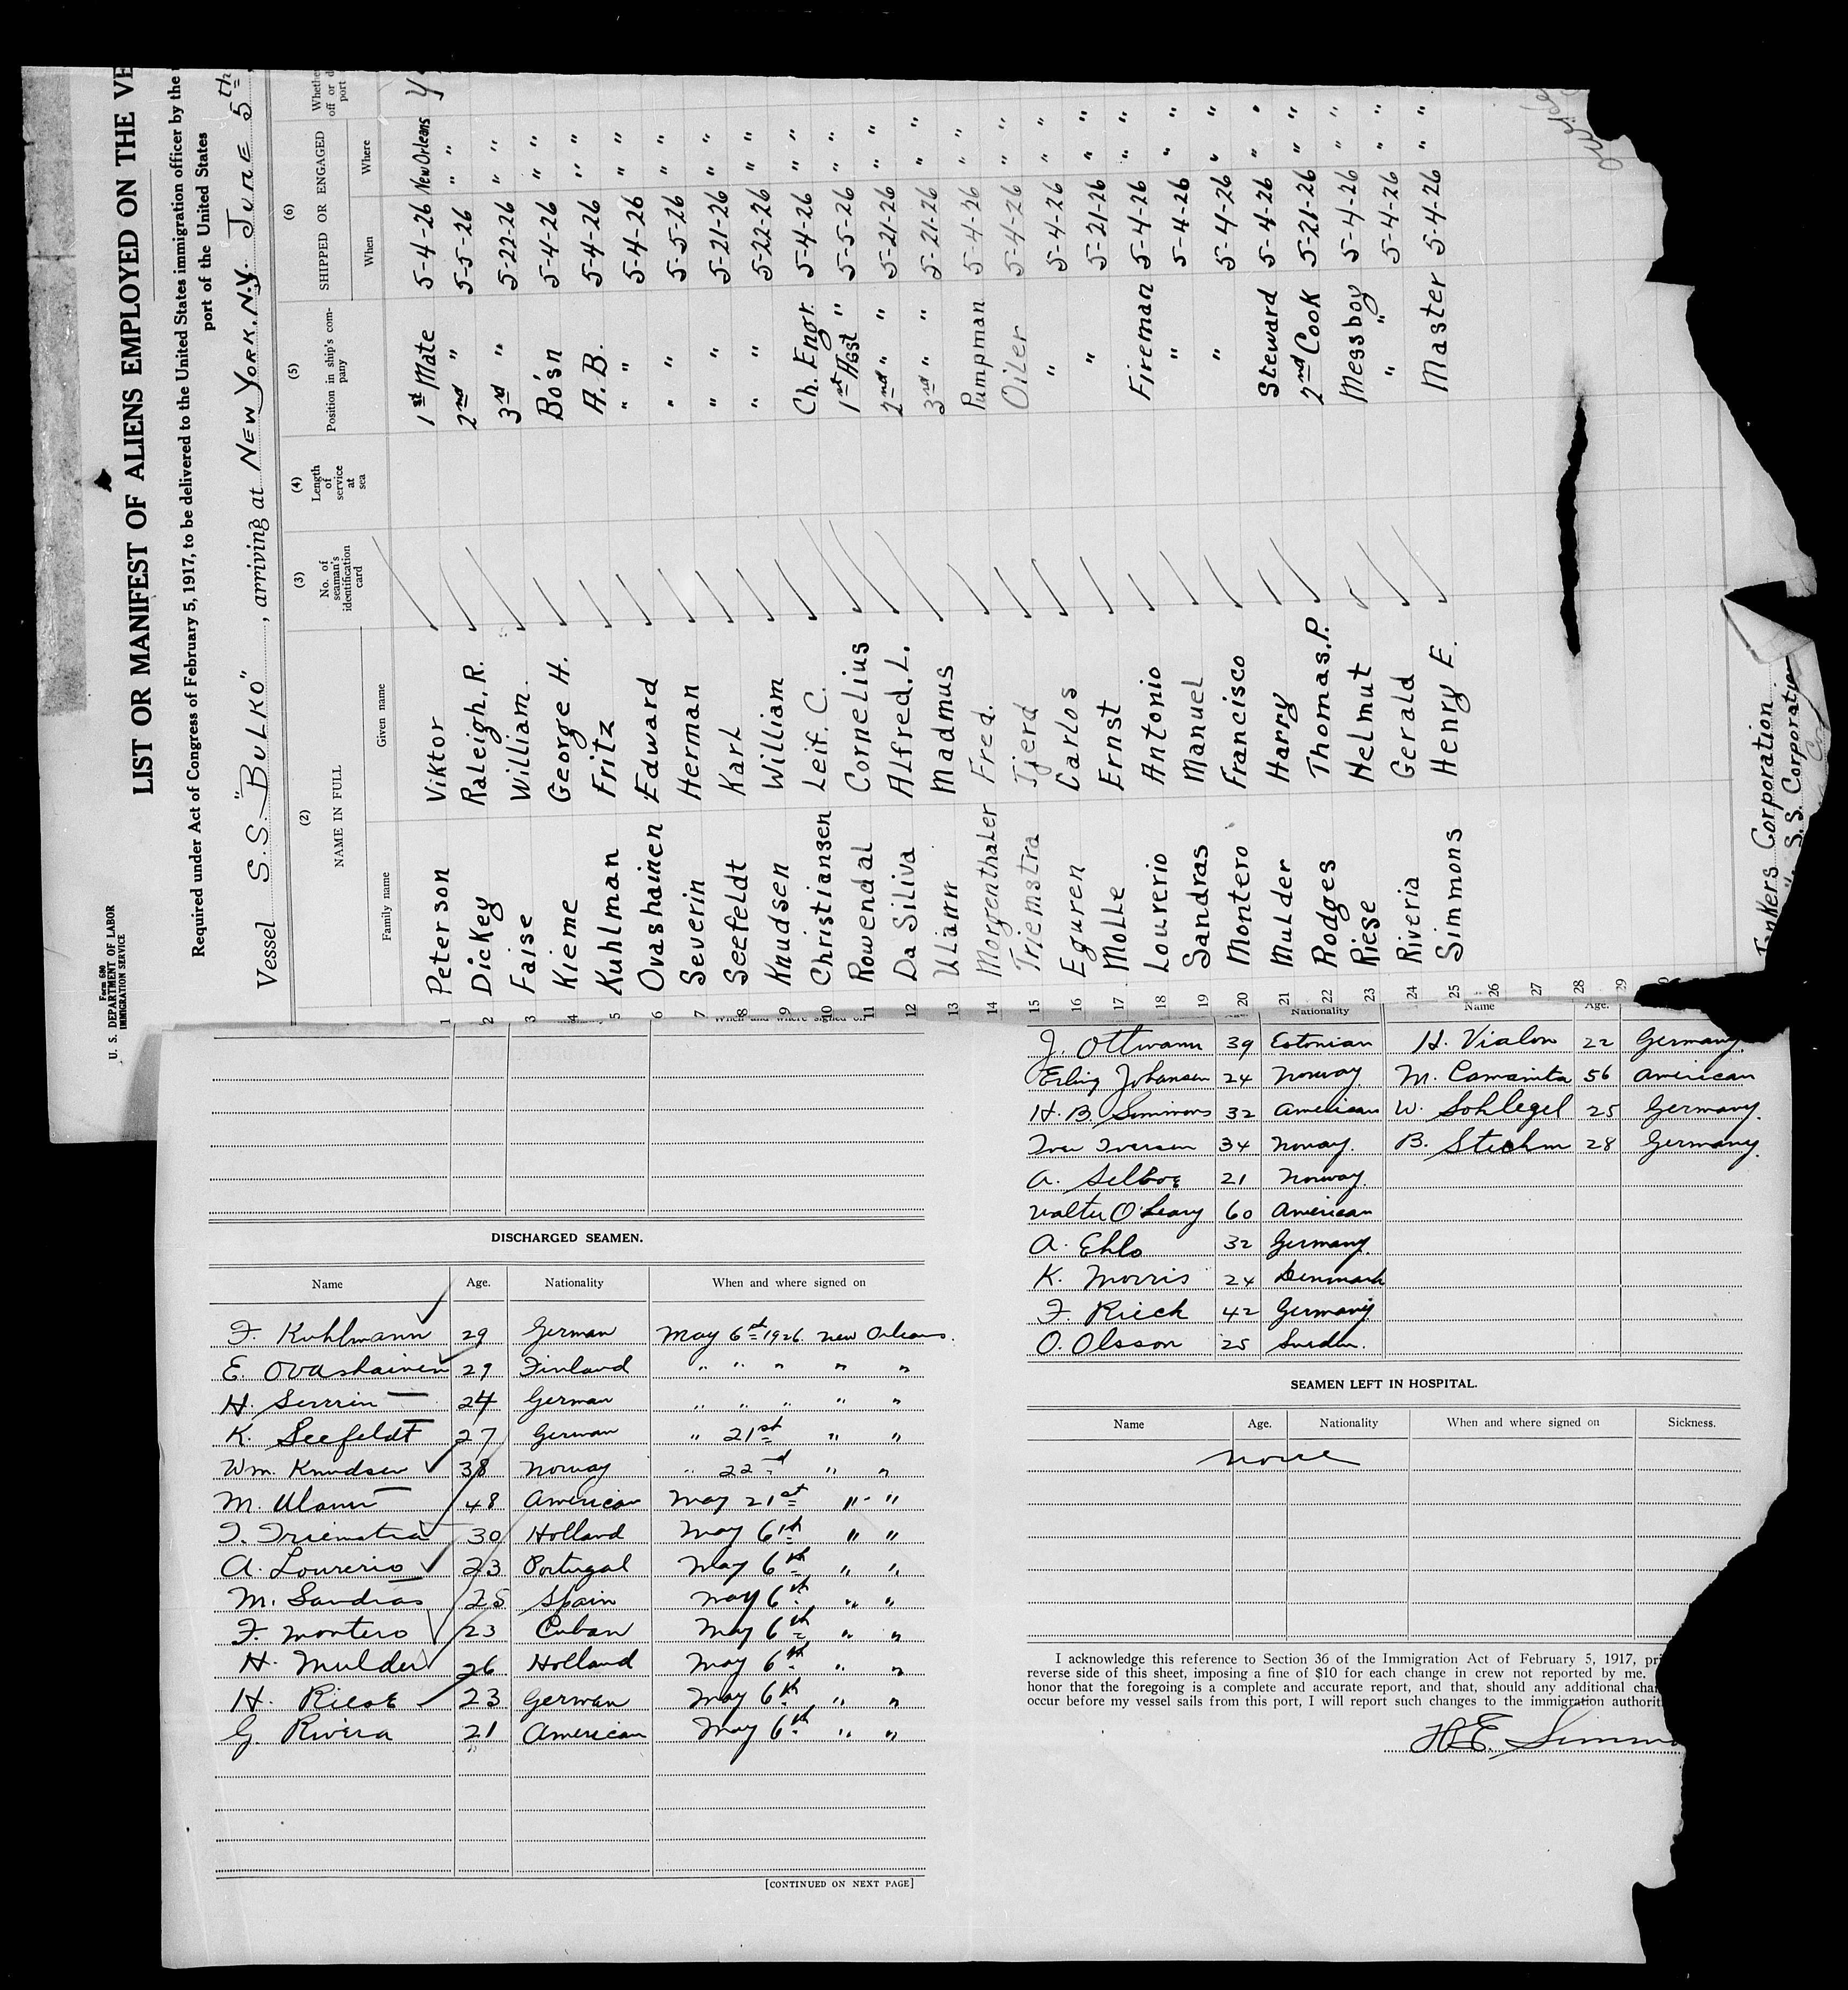 Form 680
U. S. DEPARTMENT OF LABOR
IMMIGRATION SERVICE
LIST OR MANIFEST OF ALIENS EMPLOYED ON THE VE
Required under Act of Congress of February 5, 1917, to be delivered to the United States immigration officer by the
port of the United States
Vessel S.S. "BULKO", arriving at NEW YORK. N.Y. JUNE 5th
(2) (3) (4) (5) (6)
NAME IN FULL No. of seaman's identification card Length of service at sea Position in ship's company SHIPPED OR ENGAGED Whethe off or d port
Family name Given name When Where
1 Peterson Viktor 1st Mate 5-4-26 New Orleans
2 Dickey Raleigh. R. 2nd " 5-5-26 " "
3 Faise William. 3rd " 5-22-26 " "
4 Kieme George H. Bo'sn 5-4-26 " "
5 Kuhlman Fritz A.B. 5-4-26 " "
6 Ovashainen Edward " " 5-4-26 " "
7 Severin Herman " " 5-5-26 " "
8 Seefeldt Karl " " 5-21-26 " "
9 Knudsen William " " 5-22-26 " "
10 Christiansen Leif. C. Ch. Engr. 5-4-26 " "
11 Rowendal Cornelius 1st Asst " 5-5-26 " "
12 Da Siliva Alfred. L. 2nd " " 5-21-26 " "
13 Ulann Madmus 3rd " " 5-21-26 " "
14 Morgenthaler Fred. Pumpman 5-4-26 " "
15 Triemstra Tjerd Oiler 5-4-26 " "
16 Eguren Carlos " 5-4-26 " "
17 Molle Ernst " 5-21-26 " "
18 Lourerio Antonio Fireman 5-4-26 " "
19 Sandras Manuel " 5-4-26 " "
20 Montero Francisco " 5-4-26 " "
21 Mulder Harry Steward 5-4-26 " "
22 Rodges Thomas. P. 2nd Cook 5-21-26 " "
23 Riese Helmut Messboy 5-4-26 " "
24 Riveria Gerald " " 5-4-26 " "
25 Simmons Henry E. Master 5-4-26 " "
26
27
28
29
Tankers Corporation
" S.S. Corporation
When and where signed on
DISCHARGED SEAMEN.
Name Age. Nationality When and where signed on
F. Kuhlmann 29 German May 6th 1926 New Orleans.
E. Ovashainen 29 Finland " " " " "
H. Serrin 24 German " " " " "
K. Seefeldt 27 German " 21st " "
Wm. Knudsen 38 Norway " 22nd " "
M. Ulann 48 American May 21st " "
T. Triemstra 30 Holland May 6th " "
A. Lourerio 23 Portugal May 6th " "
M. Sandras 25 Spain May 6th " "
F. Montero 23 Cuban May 6th " "
H. Mulder 26 Holland May 6th " "
H. Riese 23 German May 6th " "
G. Rivera 21 American May 6th " "
[CONTINUED ON NEXT PAGE]
Nationality Name Age.
J. Ottmann 39 Estonian H. Vialon 22 Germany
Erling Johansen 24 Norway M. Camanita 56 American
H. B. Simmons 32 American W. Sohlegel 25 Germany.
Iver Iversen 34 Norway. B. Stechm 28 Germany.
A. Selboe 21 Norway.
Walter O'Leary 60 American
A. Ehlo 32 Germany
K. Morris 24 Denmark
F. Riech 42 Germany
O. Olsson 25 Sweden.
SEAMEN LEFT IN HOSPITAL.
Name Age. Nationality When and where signed on Sickness.
none
I acknowledge this reference to Section 36 of the Immigration Act of February 5, 1917, pri
reverse side of this sheet, imposing a fine of $10 for each change in crew not reported by me.
honor that the foregoing is a complete and accurate report, and that, should any additional cha
occur before my vessel sails from this port, I will report such changes to the immigration authorit
H.E. Simmo